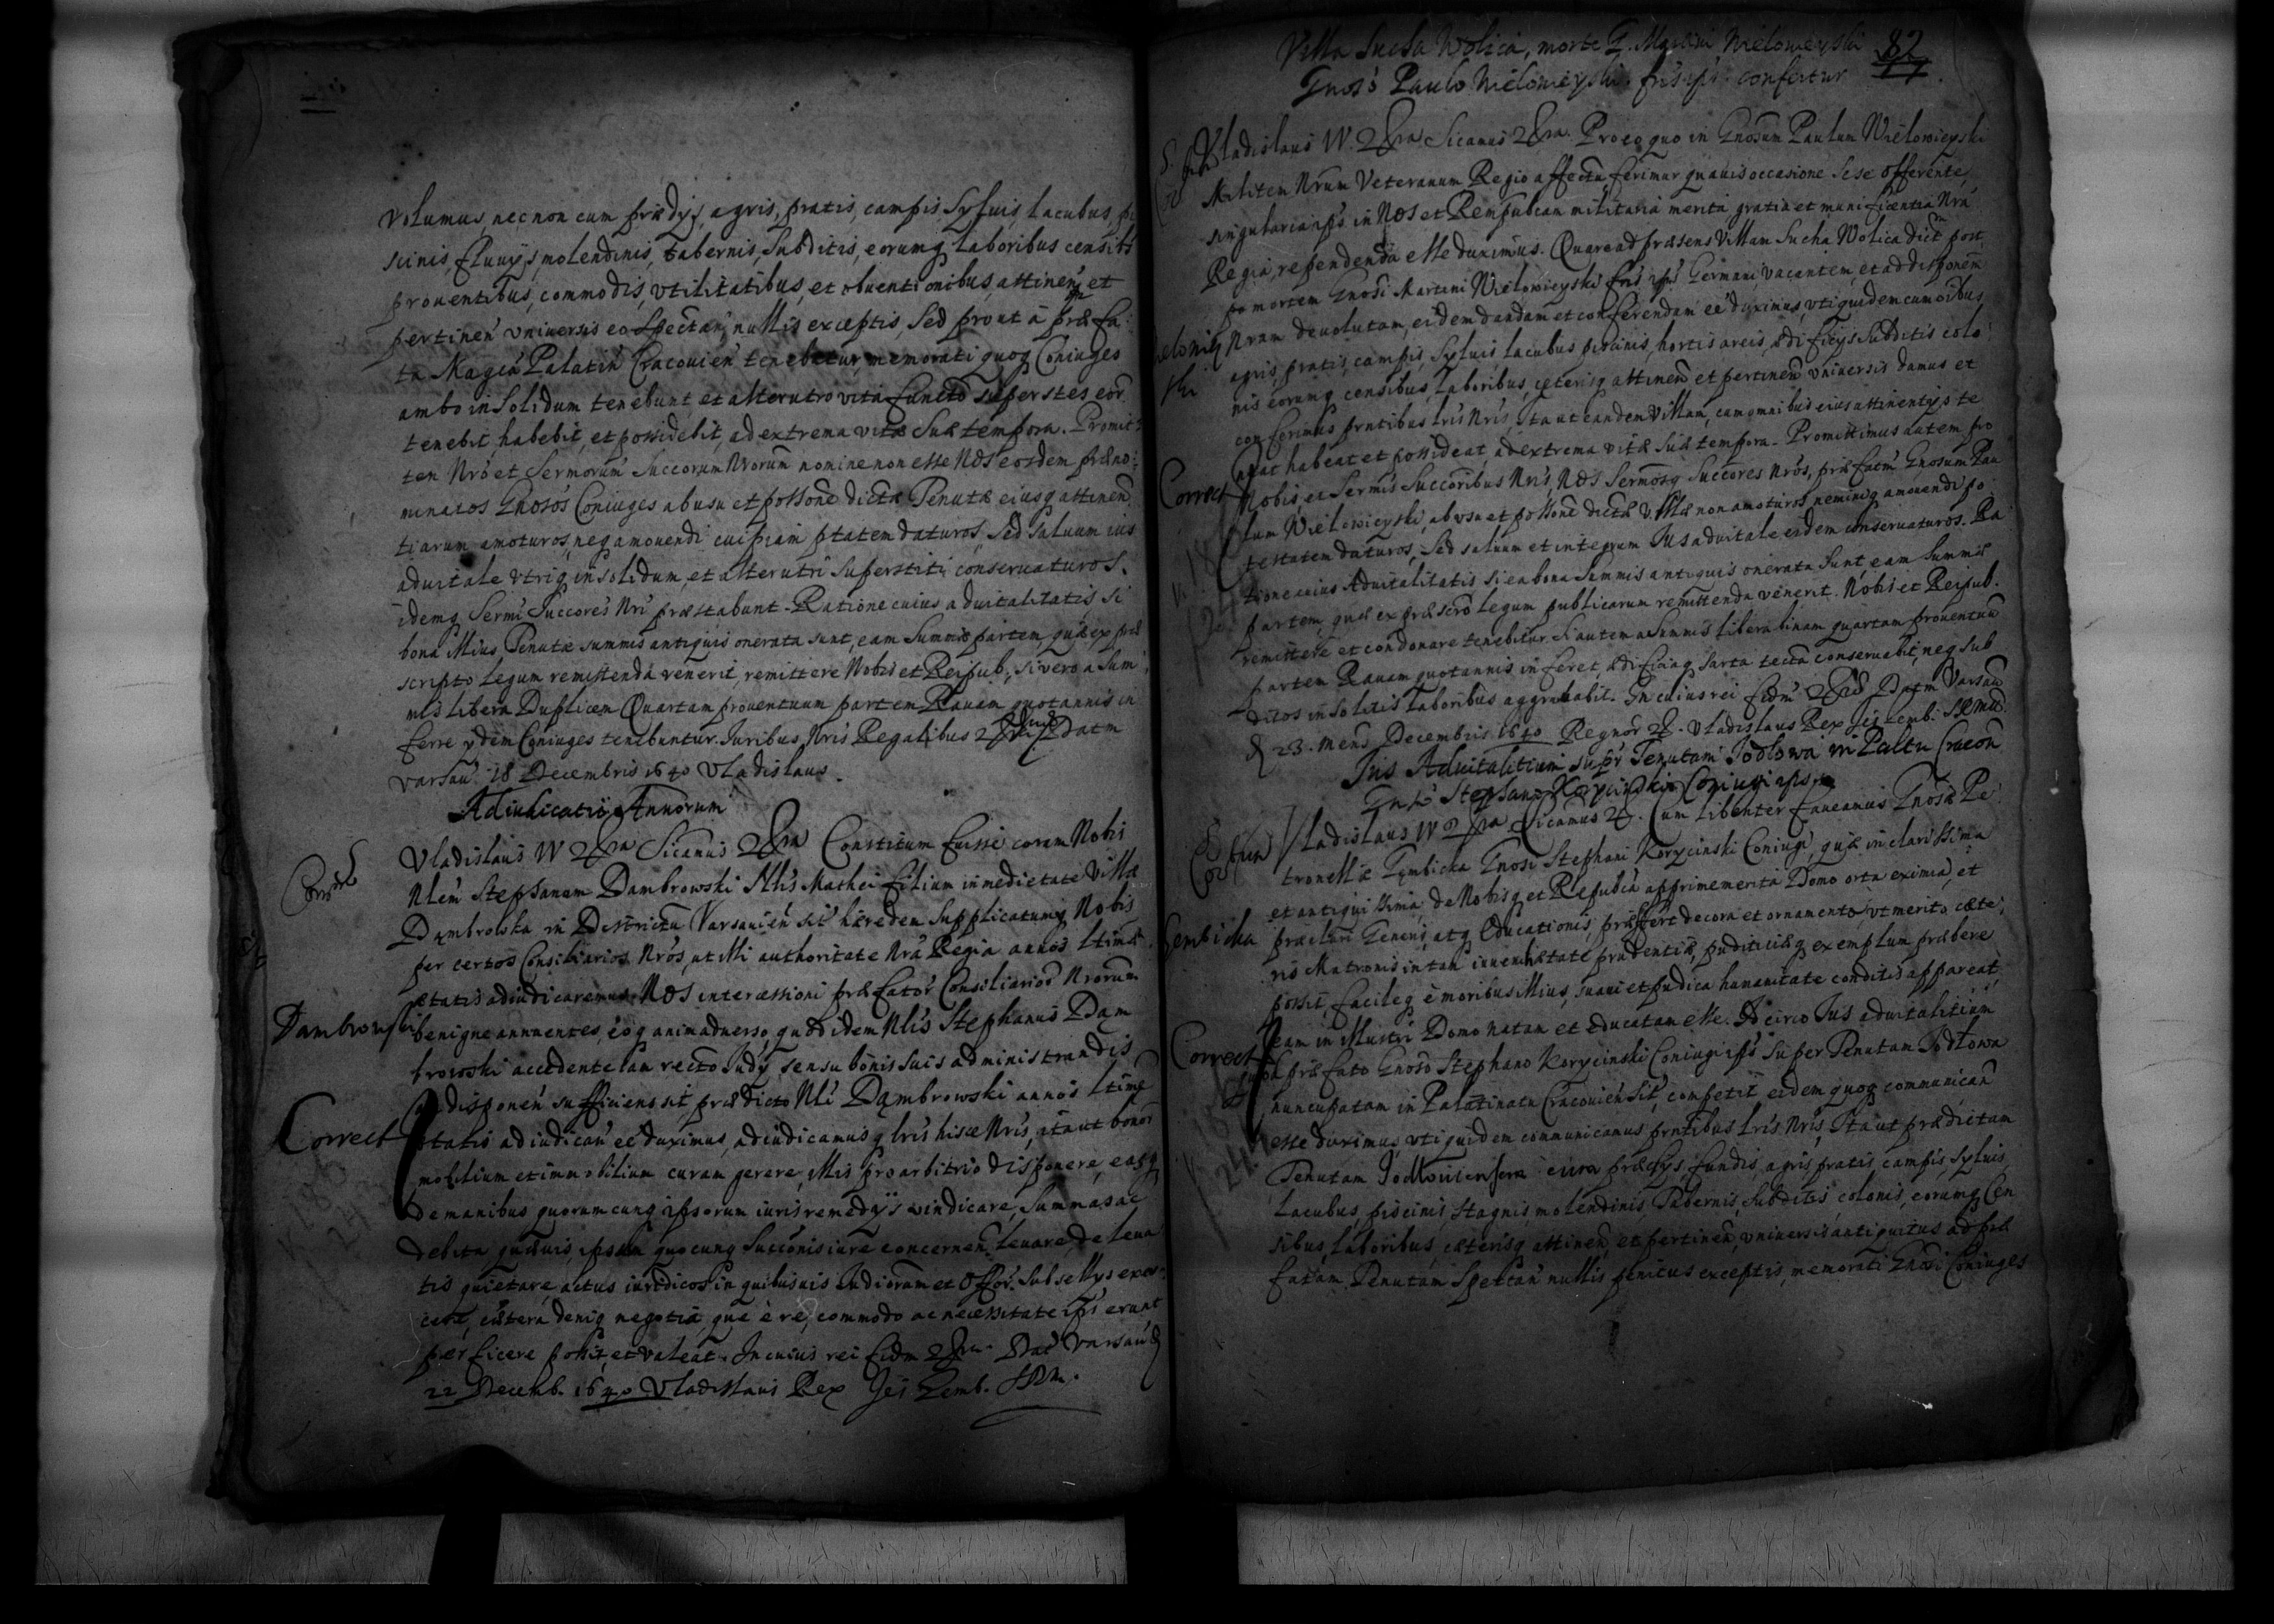 volumus, nec non cum prædys, agris, pratis, campis, Syluis, Lacubus, pi
scinis, fluuys, molendinis, tabernis, Subditis, eorumq laboribus censibs
prouentibus, commodis, vtilitatibus, et obuentionibus, attinen et
pertinen vniuersis eo Spectan, nullis exceptis Sed prout à præfa
to Magco Palatin Cracouien tenebatur, memorati quoq Coniuges
ambo in Solidum tenebunt, et alterutro vita functo superstes eor
tenebit, habebit, et possidebit, ad extrema vitæ Suæ tempora. Promit
ten Nro et Sermorum Succorum Nrorum nomine non esse Nos eosdem præno
minatos Gnosos Coniuges ab usu et possone dictæ Tenutæ eiusq attinen
tiarum amoturos, neq amouendi cuipiam ptatem daturos, Sed Saluum ius
aduitale vtriq in solidum, et alterutri Superstiti conseruaturos.
idemq Sermi Succores Nri præstabunt. Ratione cuius aduitalitatis Si
bona illius Tenutæ summis antiquis onerata sunt, eam Summæ partem, quæ ex præ
scripto legum remittenda venerit, remittere Nobis et Reipub., si vero a Sum
mis libera Duplicem Quartam prouentuum partem Rauam quotannis in
ferre ydem Coniuges tenebuntur. Iuribus Nris Regalibus Datm
Varsau 18 Decembris 1640 Vladislaus.
Adiudicatio Annorum
Vladislaus IV Dei gra Sicamus Constitum fuisse coram Nobis
Nlem Stephanum Dambrowski Nlis Mathei filium in medietate Villæ
Dąmbrowka in Districtu Varsauien sit hæredem Supplicatumq Nobis
per certos Consiliarios Nros, ut illi authoritate Nra Regia annos ltimæ
ætatis adiudicaremus. Nos intercessioni præfator Consiliarior Nrorum
Dambrowski benigne annuentes, eoq animaduerso, quod idem Nlis Stephanus Dam
browski accedente iam recto Iudy sensu bonis suis administrandis
ac disponen sufficiens sit prædicto Nli Dąmbrowski annos ltimæ
Correct ætatis adiudican ee duximus, adiudicamusq lris hisce Nris, ita ut bonor
mobilium et immobilium curam gerere, illis pro arbitrio disponere, eaq
de manibus quorumcunq ipsorum iuris remedys vindicare, Summas ac
debita quæuis, ipsum quocunq Succonis iure concernen, leuare, de leua
tis quietare, actus iuridicos in quibusuis Iudiciorum et Offor. Subsellys exer
cere, cætera deniq negotia, quæ è re, commodo ac necessitate ipsi erunt
perficere possit, et valeat. In cuius rei fidm Dat Varsau
22 Decemb. 1640 Vladislaus Rex
Villa Sucha Wolica, morte G. Martini Wielowieyski 82
Gnoso Paulo Wielowieyski fri ipsi confertur
Vladislaus IV. Sicamus Pro eo quo in Gnosum Paulum Wielowieyski
Militem Nrum Veteranum Regio affectu ferimur quauis occasione Sese offerente,
singularia ipsi in Nos et Rempubcam militaria merita gratia et munificentia Nra
Regia rependenda esse duximus. Quare ad præsens Villam Sucha Wolica dict post
po mortem Gnosi Martini Wielowieyski fris ipsi Germani vacantem, et ad disponem
Nram deuolutam, eidem dandam et conferendam ee duximus, vti quidem cum oibus
agris, pratis, campis, Syluis, lacubus, piscinis, hortis areis, ædificys Subditis colo
nis eorumq censibus, laboribus, cæterisq attinen et pertinen vniuersis damus et
conferimus pntibus lris Nris, Ita ut eandem Villam, cum omnibus eius attinentys te
neat habeat et possideat, ad extrema vitæ Suæ tempora. Promittimus autem pro
Correct Nobis, et Sermis Succoribus Nris, Nos Sermosq Succores Nros, præfatm Gnosum Pau
lum Wielowieyski, ab vsu et possone dictæ Villæ non amoturos neminiq amouendi po
testatem daturos, Sed saluum et integrum Ius aduitale eidem conseruaturos. Ra
tione cuius Aduitalitatis si ea bona Summis antiquis onerata Sunt, eam Summæ
partem, quæ ex præscro legum publicarum remittenda venerit. Nobis et Reipub.
remittere et condonare tenebitur. Si autem a Summis libera binam quartam prouentuum
partem Rauam quotannis inferet, ædificiaq Sarta tecta conseruabit, neq Sub
ditos insolitis laboribus aggrauabit. In cuius rei fidm Datm Varsau
23. Mens Decembris 1640 Regnor Vladislaus Rex
Ius Aduitalitium supr Tenutam Jodłowa in Paltu Cracou
Gnso Stephano Korycinski Coniugi ipsius
Vladislaus IV Sicamus Cum libenter faueamus Gnosæ Pe
tronellæ Gembicka Gnosi Stephani Korycinski Coniugi, quæ in clarissima
et antiquissima, de Nobisq et Repubca apprime merita Domo orta eximia, et
Gembicka præclari Generis, atq Educationis, præfert decora et ornamenta, vt merito cæte
ris Matronis in tam iuuenili ætate prudentiæ, pudicitiæq exemplum præbere
possit, facileq è moribus illius, suaui et pudica humanitate conditis appareat,
eam in Illustri Domo natam et educatam esse. Idcirco Ius aduitalitium
Correct præfato Gnoso Stephano Korycinski Coniugi ipsi super Tenutam Jodłowa
nuncupatam in Palatinatu Cracouien Sit, competit eidem quoq communican
esse duximus, vti quidem communicamus pntibus lris Nris, Ita ut prædictam
Tenutam Jodłouiensem cum prædys, fundis, agris, pratis, campis, Syluis,
Lacubus, piscinis stagnis, molendinis, Tabernis, Subditis colonis, eorumq Cen
sibus, laboribus, cæterisq attinen, et pertinen, vniuersis antiquitus ad præ
fatam Tenutam Spectan nullis penitus exceptis, memorati Gnosi Coniuges